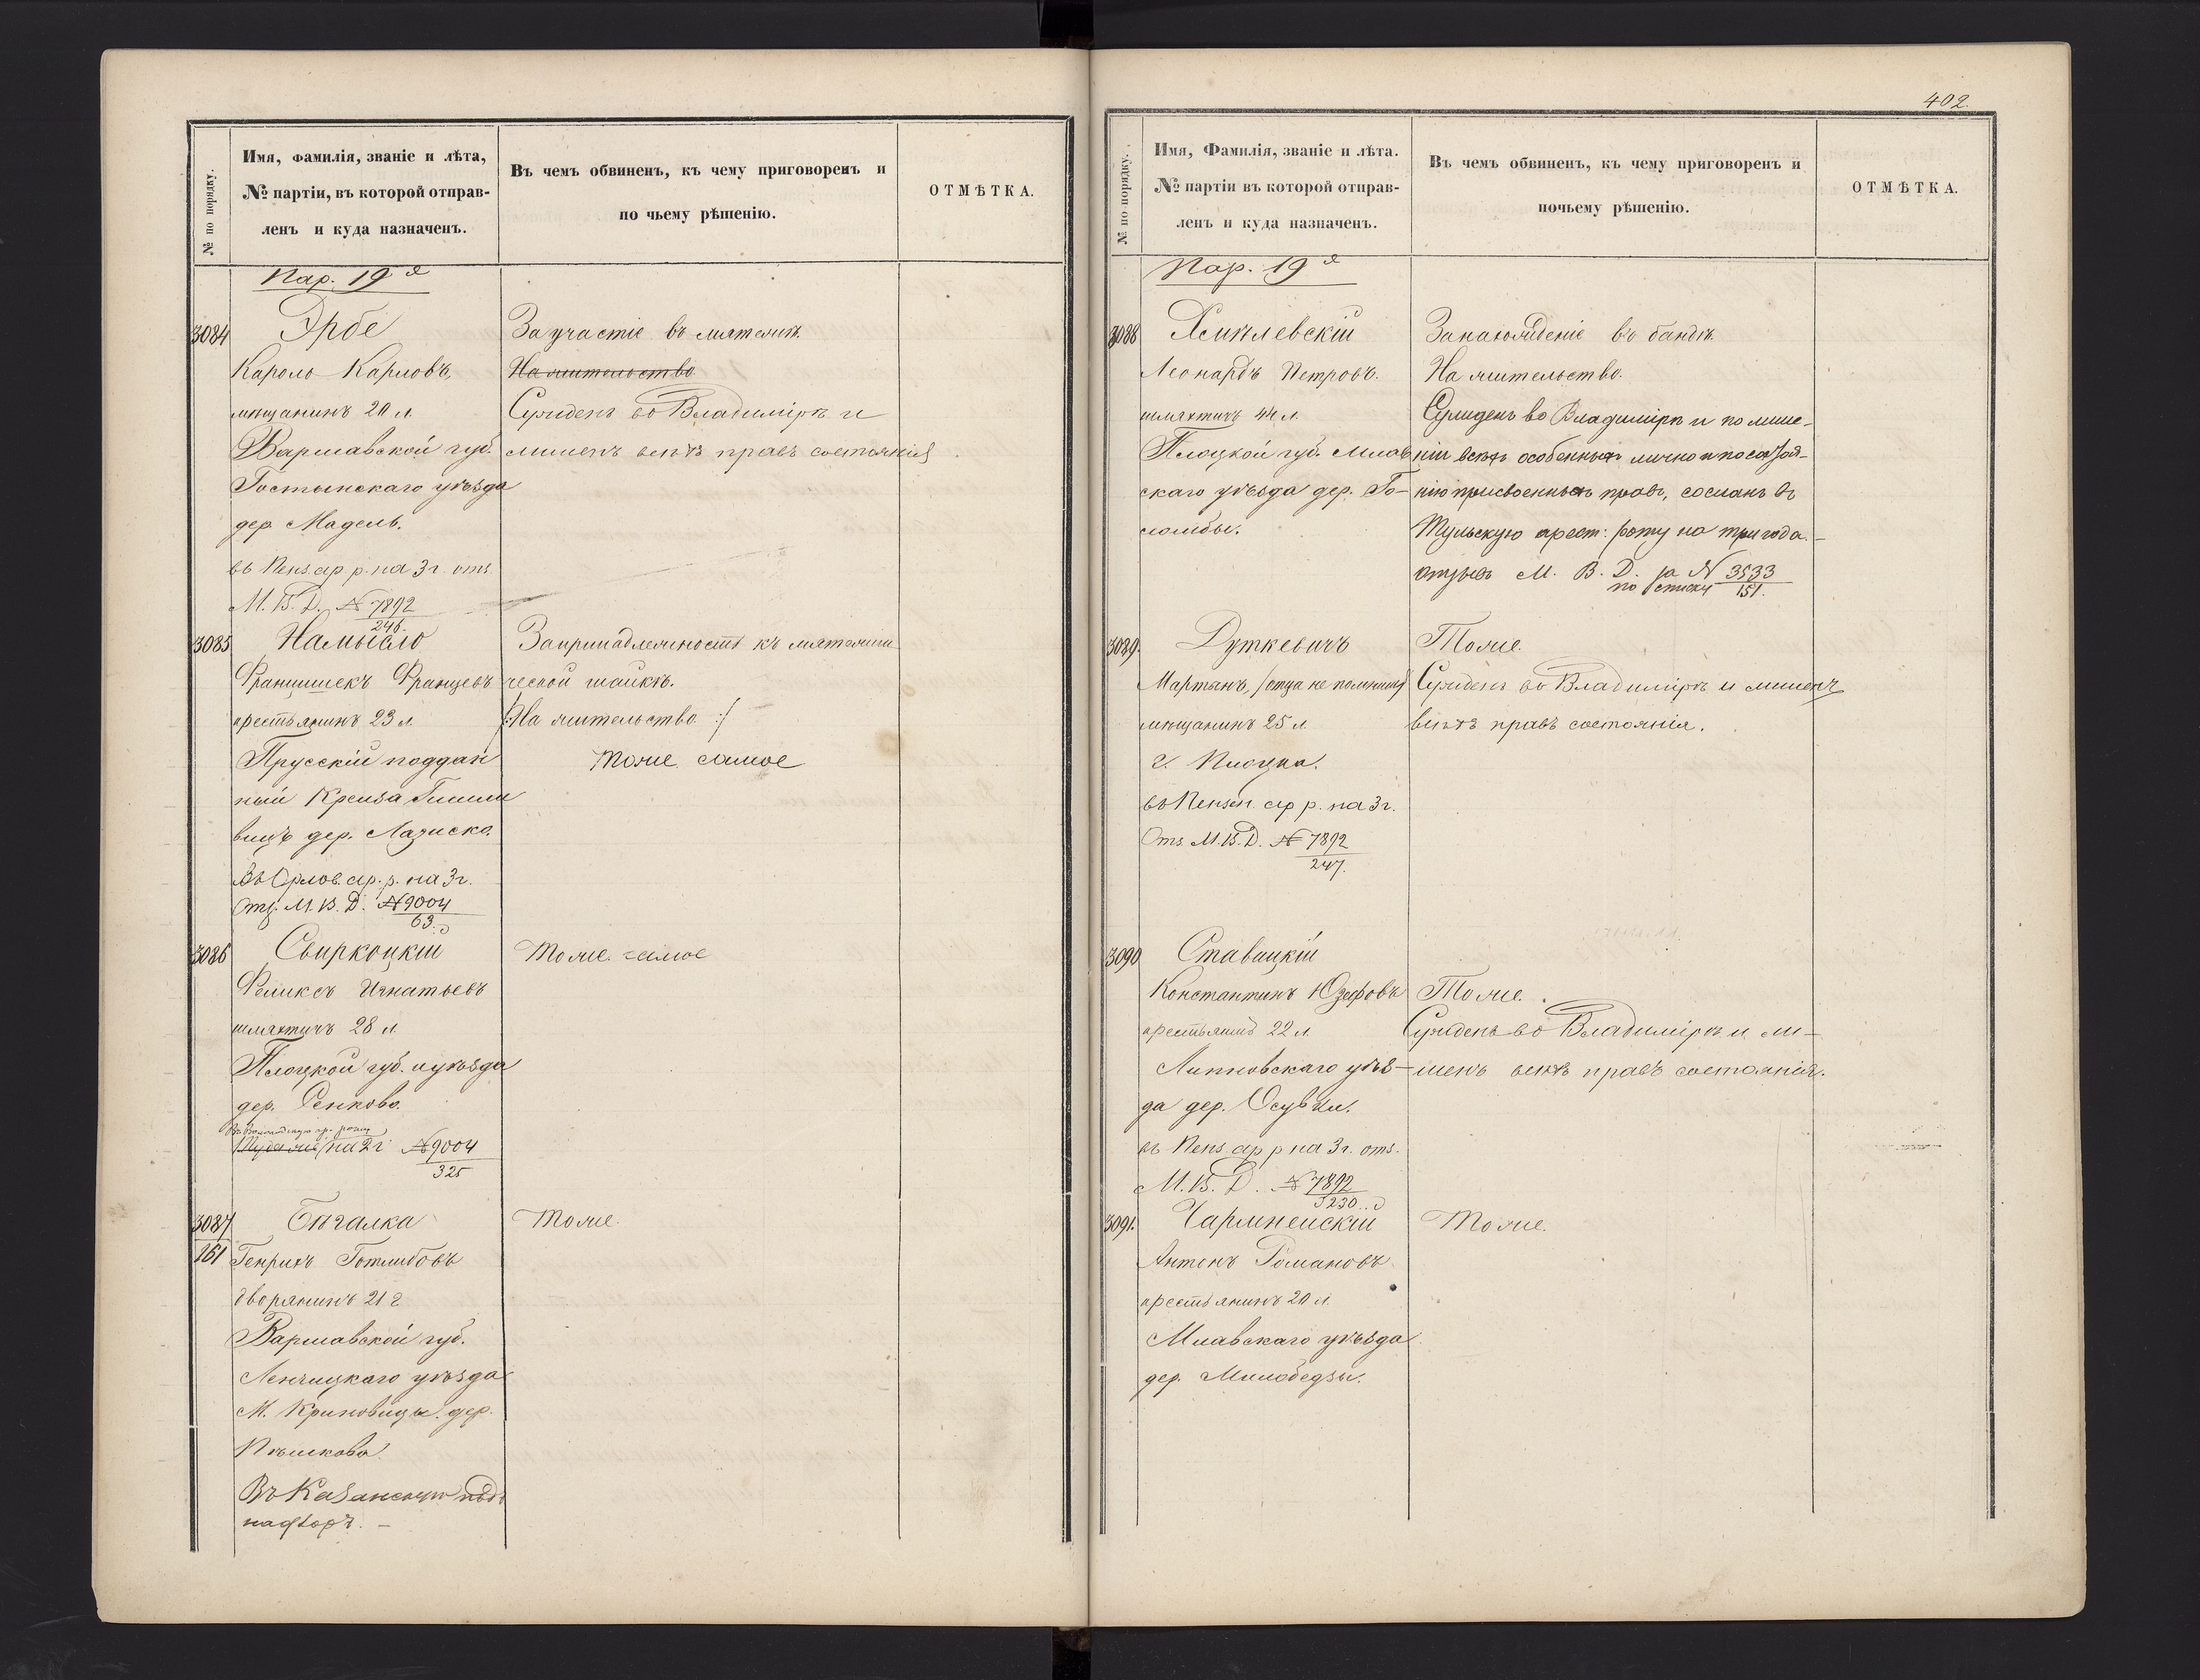 402.
№ по порядку.
Имя, Фамилія, званіе и лѣта,
№ партіи, въ которой отправ-
ленъ и куда назначенъ.
Въ чемъ обвиненъ, къ чему приговоренъ и
по чьему рѣшенію.
ОТМѢТКА.
Пар. 19я
3084
Эрбе
Кароль Карловъ,
мѣщанинъ 20 л.
Варшавской губ.
Гостынскаго уѣзда
дер. Мадель.
въ Пенз. ар. р. на 3 г. отз.
М. В. Д. № 7892
246
За участіе въ мятежѣ.
На жительство
Сужденъ во Владимірѣ и
лишенъ всѣхъ правъ состоянія
3085
Намысло
Францишекъ Францевъ
крестьянинъ 23 л.
Прусскій поддан
ный Крейза Глиши
вицъ дер. Лазиска
Въ Орлов. ар. р. на 3 г.
Отз. М. В. Д. № 9004
63.
За принадлежность къ мятежни
ческой шайкѣ.
/:На жительство:/
Тоже самое
3086
Свиркоцкій
Феликсъ Игнатьевъ
шляхтичъ 28 л.
Плоцкой губ. и уѣзда
дер. Сенково.
ар. роту
Туда же на 2 г. № 9004
325
Тоже самое
3087
161
Бѣгалка
Генрихъ Готлибовъ
дворянинъ 21 г
Варшавской губ.
Ленчицкаго уѣзда
М. Криновицы. дер.
Пѣшкова.
Въ Казанскую подъ
надзоръ. —
Тоже
№ по порядку.
Имя, Фамилія, званіе и лѣта.
№ партіи въ которой отправ-
ленъ и куда назначенъ.
Въ чемъ обвиненъ, къ чему приговоренъ и
почьему рѣшенію.
ОТМѢТКА.
Пар. 19я
3088
Хмѣлевскій
Леонардъ Петровъ.
шляхтичъ 44 л.
Плоцкой губ. Млав
скаго уѣзда дер. Го-
ломбы.
За нахожденіе въ бандѣ.
На жительство.
Сужденъ во Владимірѣ и по лише-
ніи всѣхъ особенныхъ лично и по состоя-
нію присвоенныхъ правъ, сосланъ въ
Тульскую арест: роту на три года. —
отзывъ М. В. Д. за № 3533
по списку 151.
3089.
Дуткевичъ
Мартынъ, /отца не помнишь/
мѣщанинъ 25 л.
г. Плоцка.
въ Пензен. ар р. на 3 г.
Отз. М. В. Д. № 7892
247.
Тоже.
Сужденъ во Владимірѣ и лишенъ
всѣхъ правъ состоянія.
3090
Ставицкій
Константинъ Юзефовъ
крестьянинъ 22 л.
Липновскаго уѣз-
да дер. Осувки.
въ Пенз. ар р на 3 г. отз.
М. В. Д. № 7892
230
Тоже.
Сужденъ во Владимірѣ и ли-
шенъ всѣхъ правъ состоянія.
3091.
Чарлнейскій
Антонъ Романовъ
крестьянинъ 20 л.
Млавскаго уѣзда
дер. Милобедзы.
Тоже.